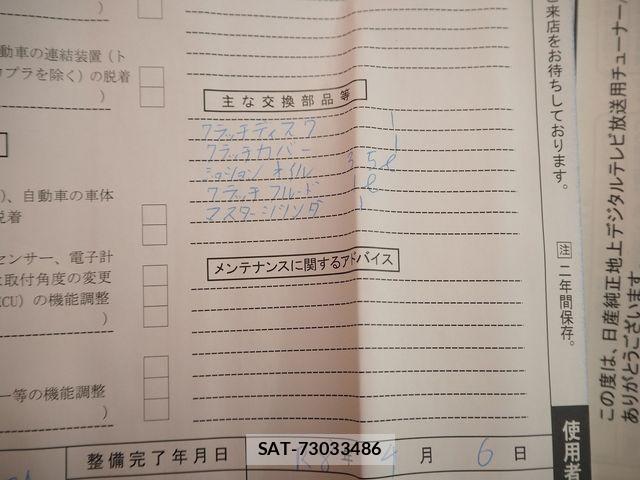 )
動車の連結装置(ト
プラを除く)の脱着
)
)、自動車の車体
脱着
センサー、電子計
取付角度の変更
ECU)の機能調整
)
ー等の機能調整
)
主な交換部品等
クラッチディスク 1
クラッチカバー 1
ミッションオイル 3.5ℓ
クラッチフルード 1ℓ
マスターシリンダ 1
メンテナンスに関するアドバイス
整備完了年月日
4月 6日
SAT-73033486
ご来店をお待ちしております。
注 二年間保存。
使用者
この度は、日産純正地上デジタルテレビ放送用チューナー
ありがとうございます